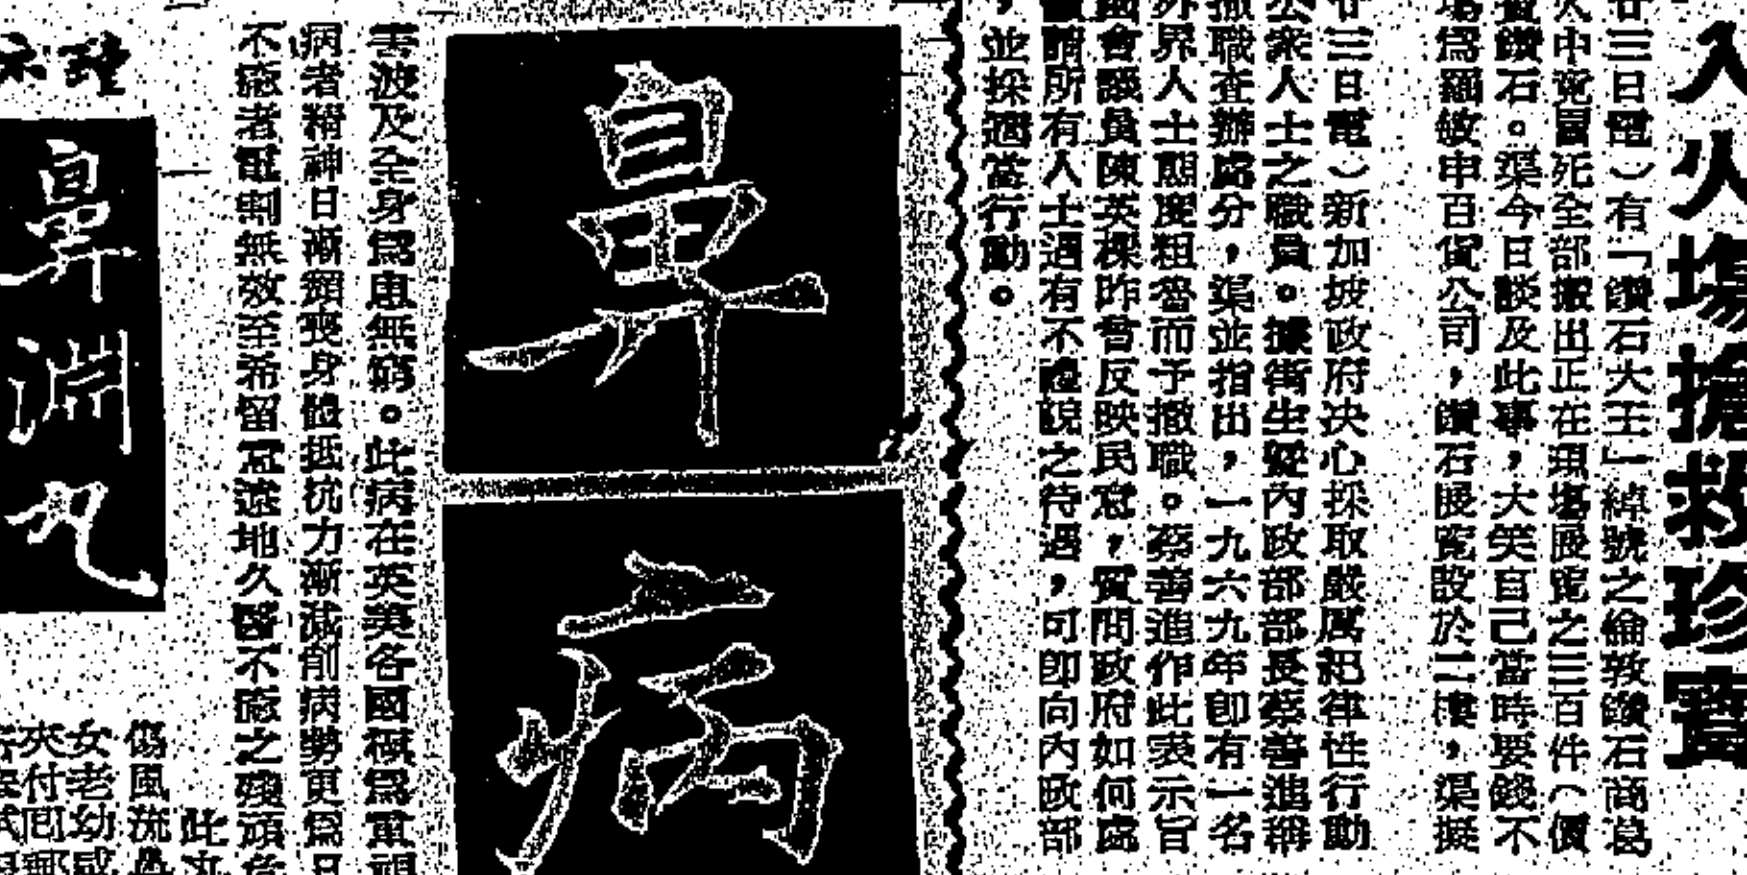 入火塲搶救珍寶
廿三日電）有「鑽石大王」綽號之倫敦鑽石商葛
火中冤屈死全部搬出正在現塲展覽之三百件（價
鑽石。渠今日談及此事，大笑自己當時要錢不
塲爲羅敏申百貨公司，鑽石展覽設於二樓，渠擬
廿三日電）新加坡政府决心採取嚴厲紀律性行動
公衆人士之職員。據衛生兼內政部部長蔡善進稱
撤職查辦處分，渠並指出，一九六九年卽有一名
外界人士態度粗魯而予撤職。蔡善進作此表示旨
國會議員陳英樑昨曾反映民意，質問政府如何處
謂所有人士遇有不禮貌之待遇，可卽向內政部
，並採適當行動。
鼻
病
害波及全身爲患無窮。此病在英美各國極爲重視
病者精神日漸頹喪身體抵抗力漸減削病勢更爲日
不癒者電割無效至希留意遠地久醫不癒之殘頑危
鼻淵丸
此丸
傷風流鼻
女老幼感
夾付回郵